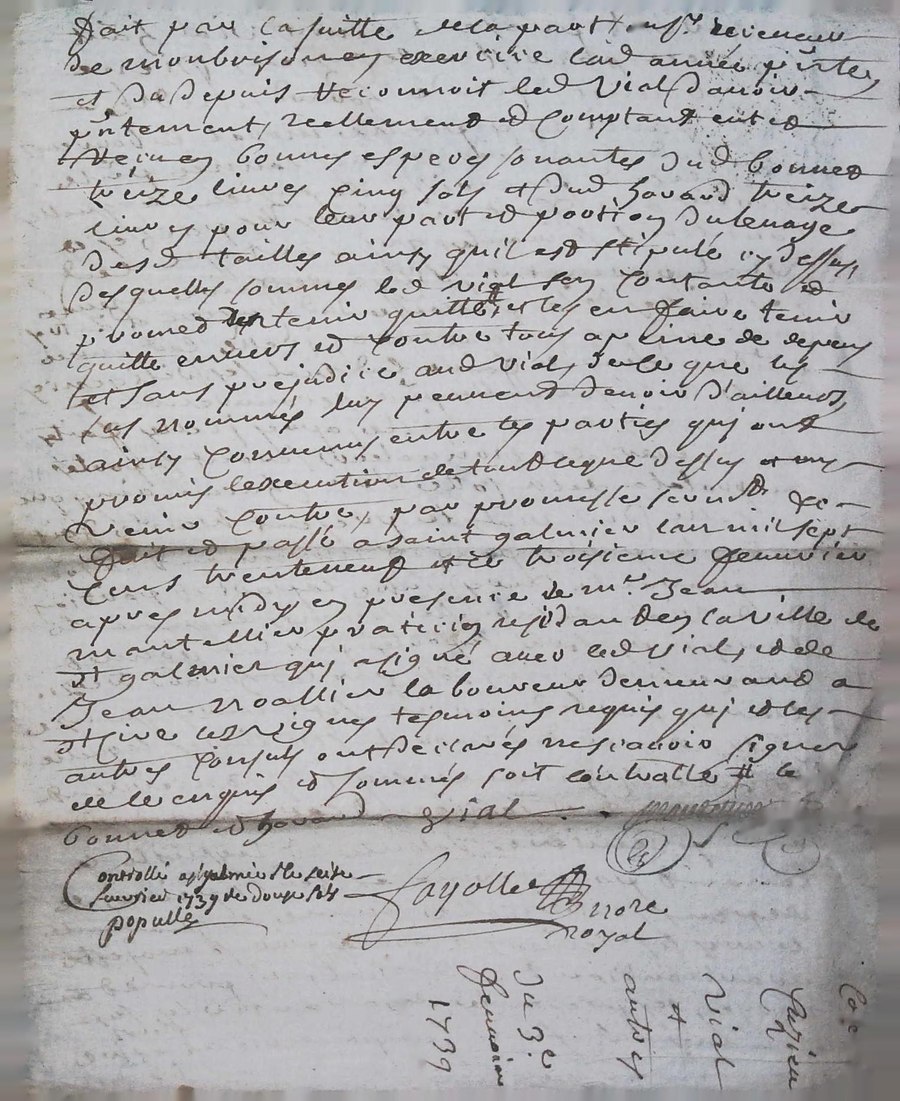 fait par la suitte de la part
de monbrison en exercice lad année pnte
et du depuis reconnoit led Vial d'avoir
pntement, reellement et comptant eut et
receu en bonnes especes sonantes dud bonnet
treize livres cinq sols et dud hovand treize
livres pour leur part et portion du levage
desd tailles ainsy quil est stipulé cy dessus
desquelles sommes led vial sen contante et
promet les tenir quitte et les en faire tenir
quitte envers et contre tous a peine de depens
et sans prejudice aud vial de ce que les
sus nommés luy peuvent devoir d'ailleurs
ainsy convenus entre les parties qui ont
promis l'execution de tout ce que dessus et ny
venir contre, par promesse serm't &c
fait et passé a saint galmier l'an mil sept
cens trente neuf et le troisieme fevrier
apres midy en presence de mr. Jean
mantellier praticien residant en la ville de
st galmier qui a signé avec led vial, et de
Jean noallier laboureur demeurand a
tesmoins requis qui et les
autres consuls ont declarés ne scavoir signer
de ce enquis et sommés soit controllé le
bonnet et hovand vial
Controllé a st galmier le seize
fevrier 1739 re douze sols
populle
fayolle
nore
royal
Cuzieu
vial
+
autres
du 3e
fevrier
1739